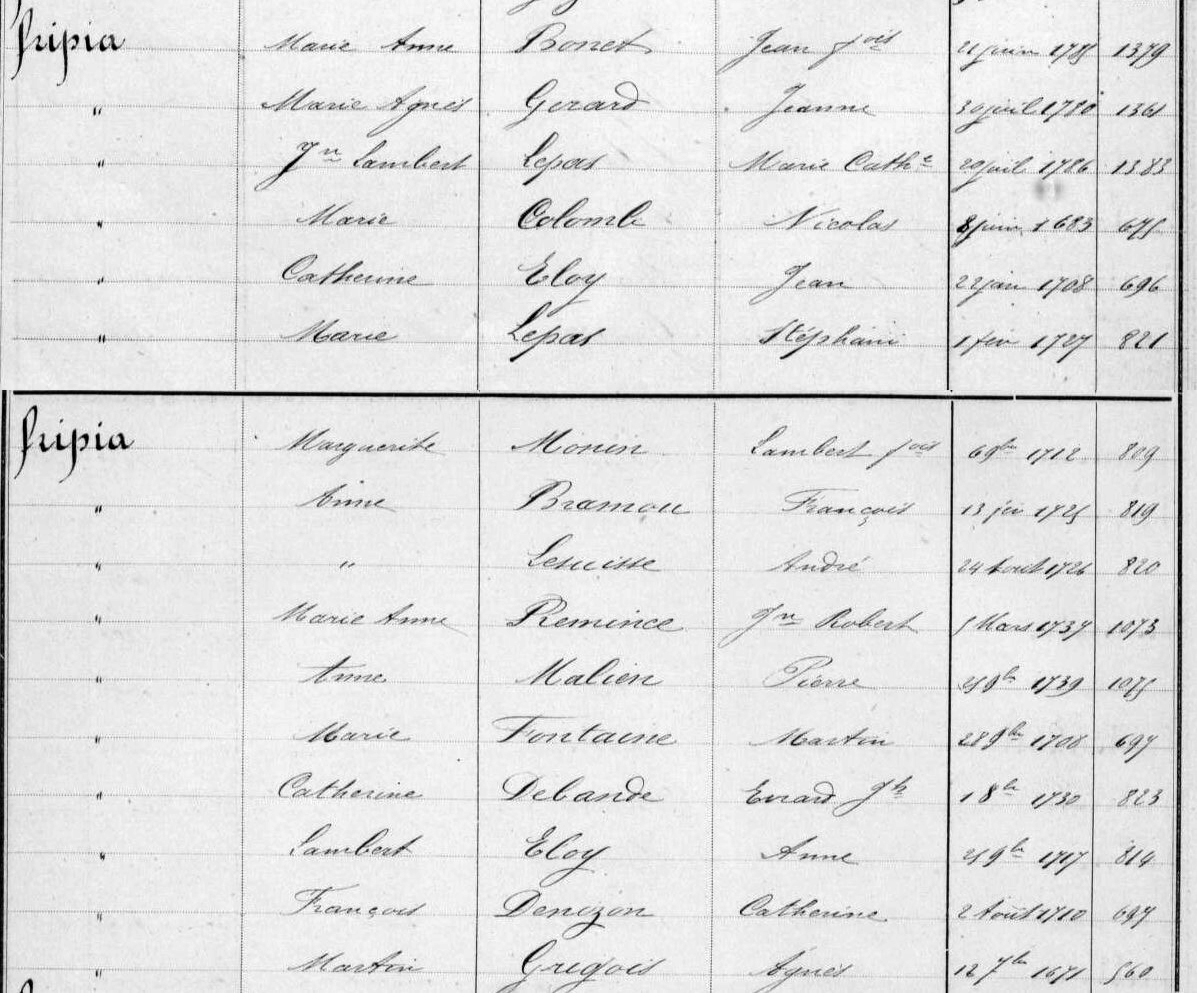 fripia Marie Anne Bonet Jean fois 21 juin 1785 1379
" Marie Agnes Gerard Jeanne 30 juil 1780 1361
" Jn Lambert Lepas Marie Cathe 20 juil 1786 1383
" Marie Colomb Nicolas 8 juin 1683 675
" Catherine Eloy Jean 22 jan 1708 696
" Marie Lepas Stéphani 1 fev 1727 821
fripia Marguerite Monin Lambert fois 6 9bre 1712 809
" Anne Bramou François 13 1725 819
" " Lesuisse André 24 Aout 1726 820
" Marie Anne Remince Jn Robert 5 Mars 1737 1073
" Anne Malien Pierre 1739 1075
" Marie Fontaine Martin 28 9bre 1708 697
" Catherine Debande Evrard Jh 1 8bre 1730 823
" Lambert Eloy Anne 25 9bre 1717 814
" François Denozon Catherine 2 Aout 1710 697
" Martin Gregois Agnes 12 7bre 1671 560